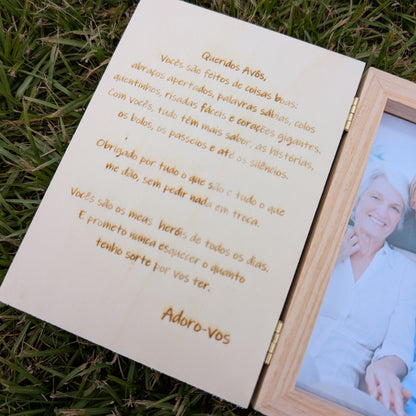 Queridos Avós,
Vocês são feitos de coisas boas:
abraços apertados, palavras sábias, colos
quentinhos, risadas fáceis e corações gigantes.
Com vocês, tudo têm mais sabor, as histórias,
os bolos, os passeios e até os silêncios.
Obrigado por tudo o que são e tudo o que
me dão, sem pedir nada em troca.
Vocês são os meus heróis de todos os dias,
E prometo nunca esquecer o quanto
tenho sorte por vos ter.
Adoro-Vos